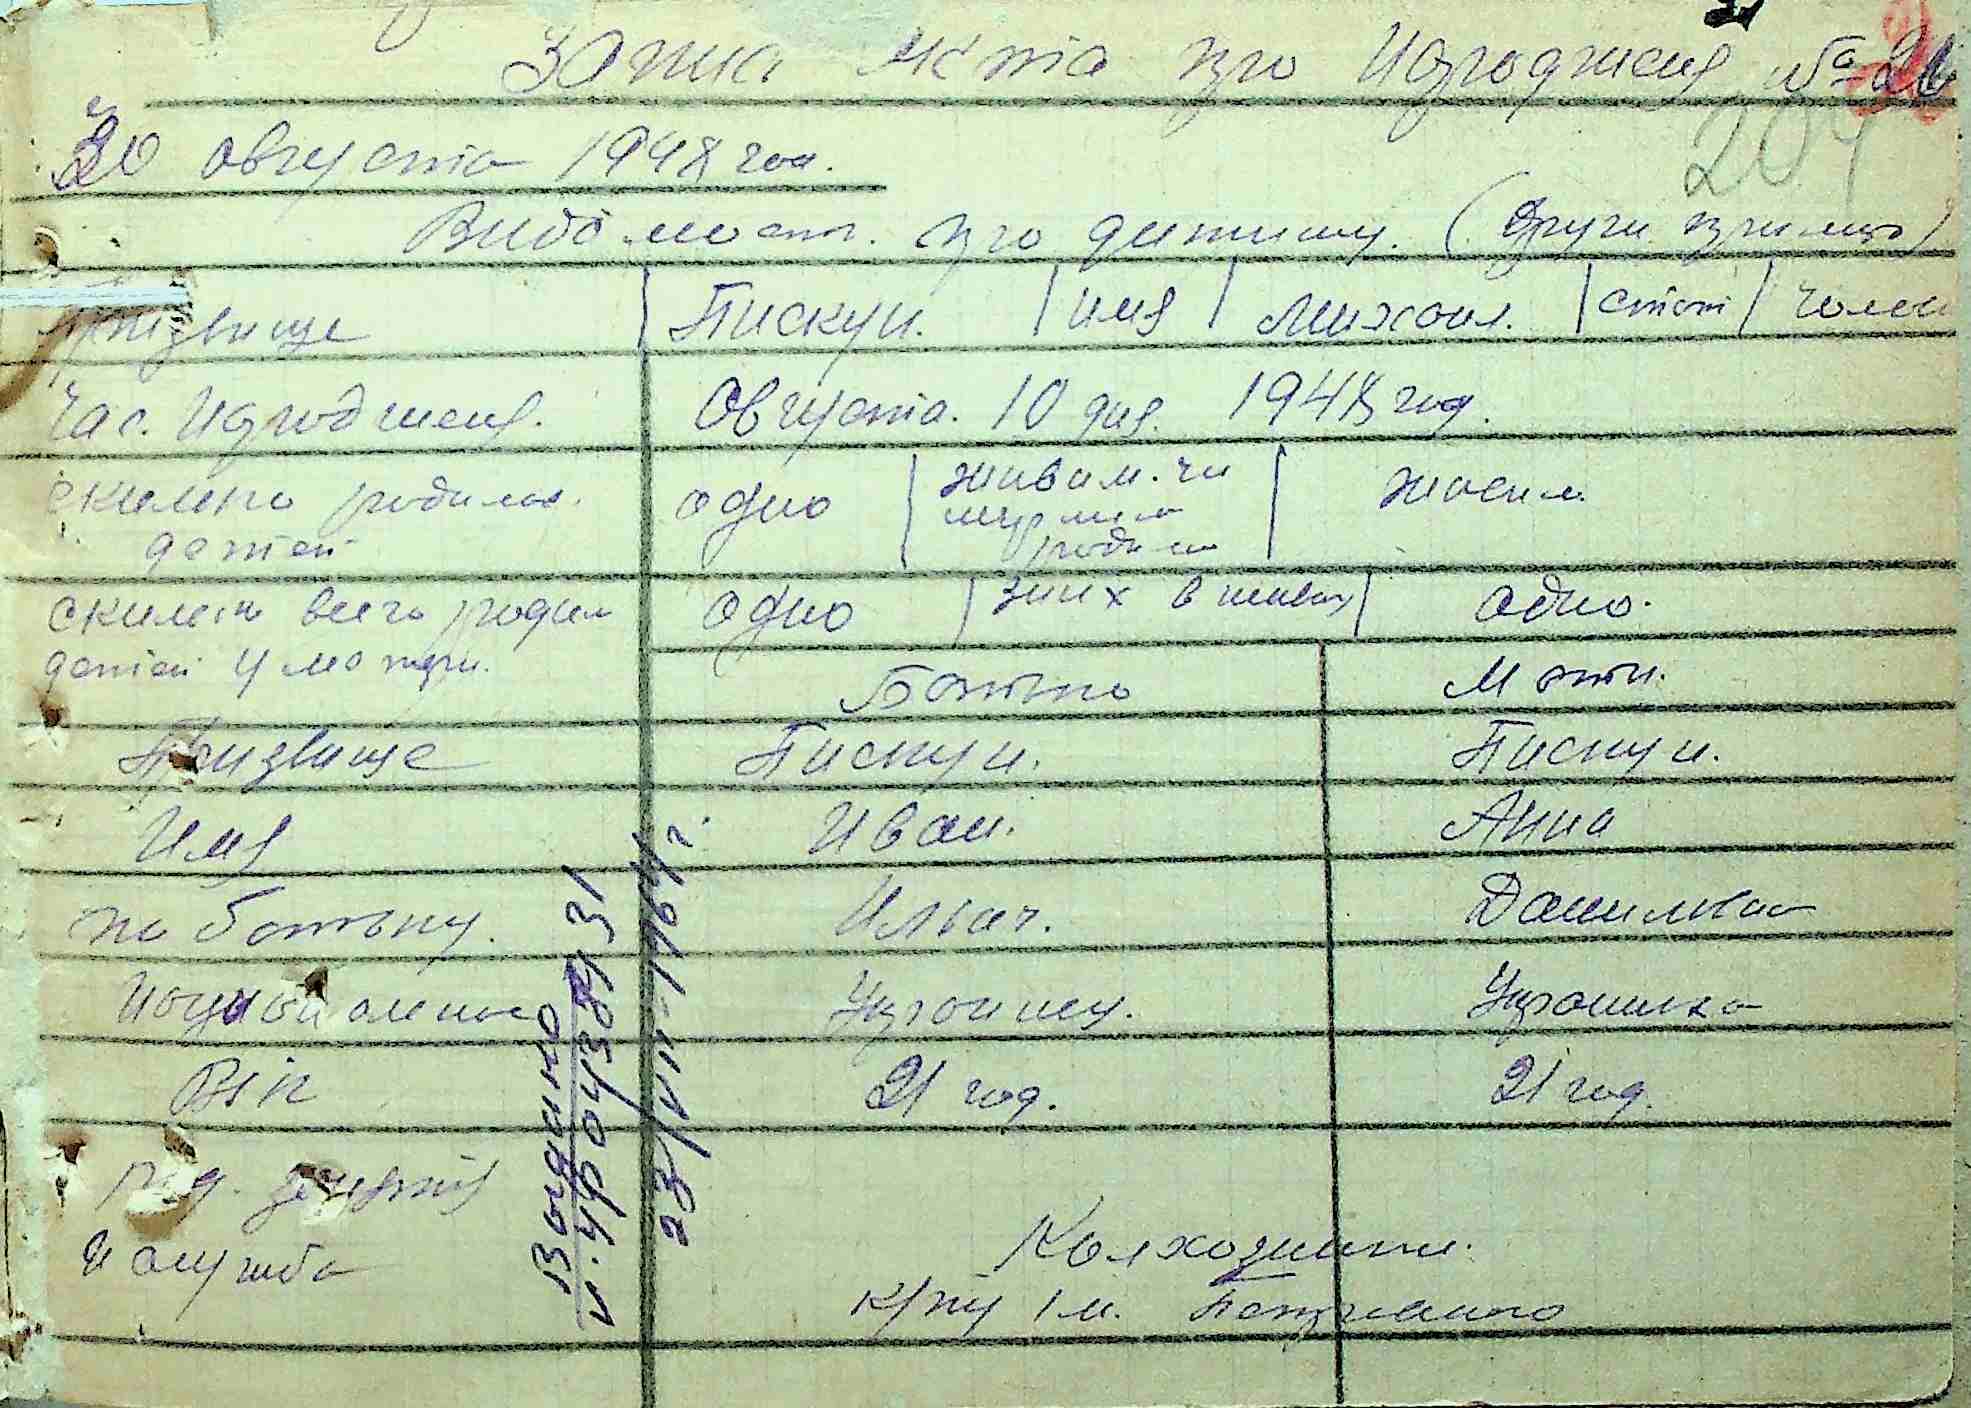 Запис Акта про Народження № 21
20 Августа 1948 год.
204
Видомост. про дитину. (други примир)
Призвище | Пискун. | имя | Михаил. | стат | Чолов
Час. Народження. | Августа. 10 дня. 1948 год.
Скилько родилос. дитей | одно | живым. чи мертвим родився | живим
Скилько всего родил дитей у матери. | одно | з них в живых | одно.
Батько | Мати.
Призвище | Пискун. | Пискун.
Имя | Иван. | Анна
по батьку. | Ильич. | Даниловна
Нацыональнос | Украинец. | Украинка
Вік | 21 год. | 21 год.
Род. занятия
и служба
Колхозники.
к/пу ім. Петровского
Выдано
23/VII-1964 г.